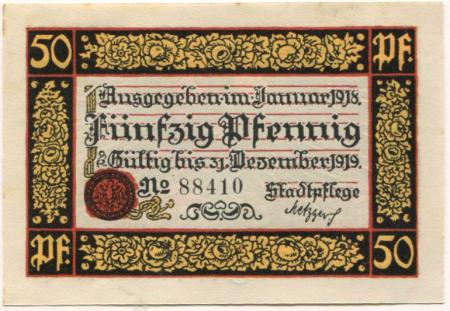 50 Pf.
Ausgegeben im Januar 1918.
Fünfzig Pfennig
Gültig bis 31. Dezember 1919.
No 88410 Stadtpflege
Metzger
Pf. 50